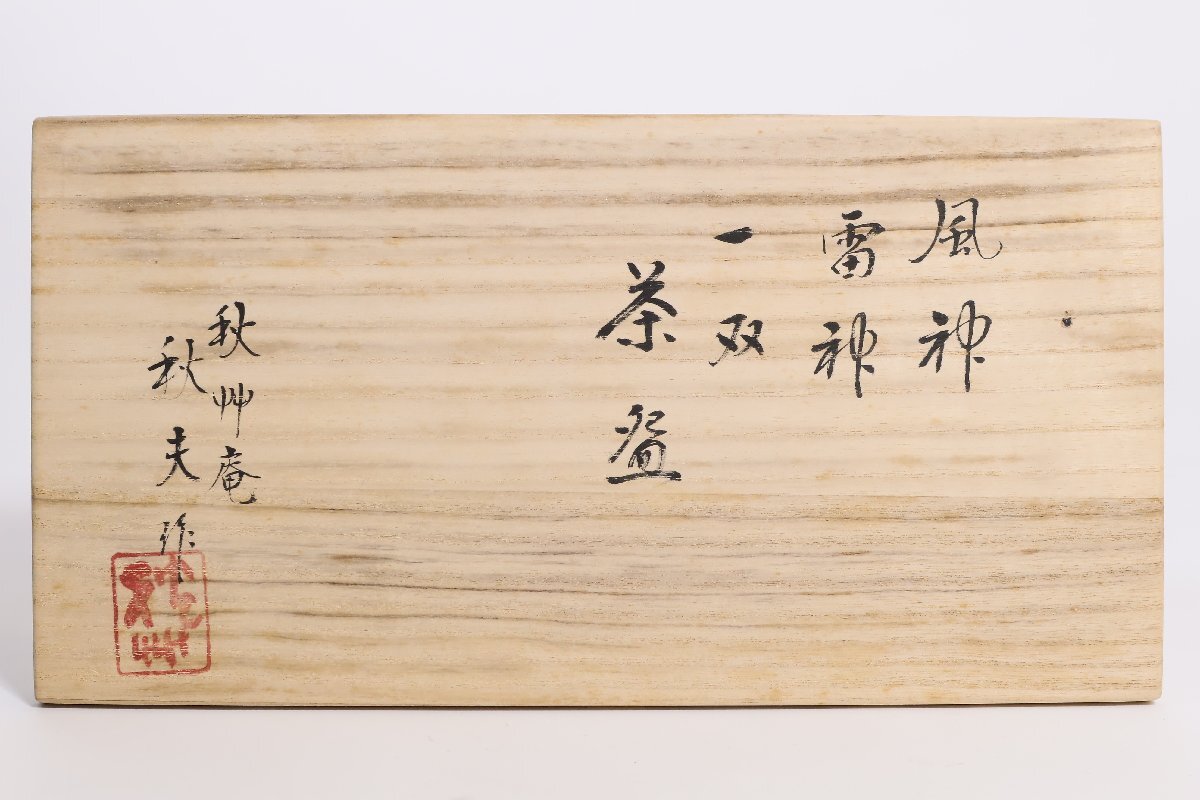 風神
雷神
一双
茶盌
秋艸庵
秋夫作